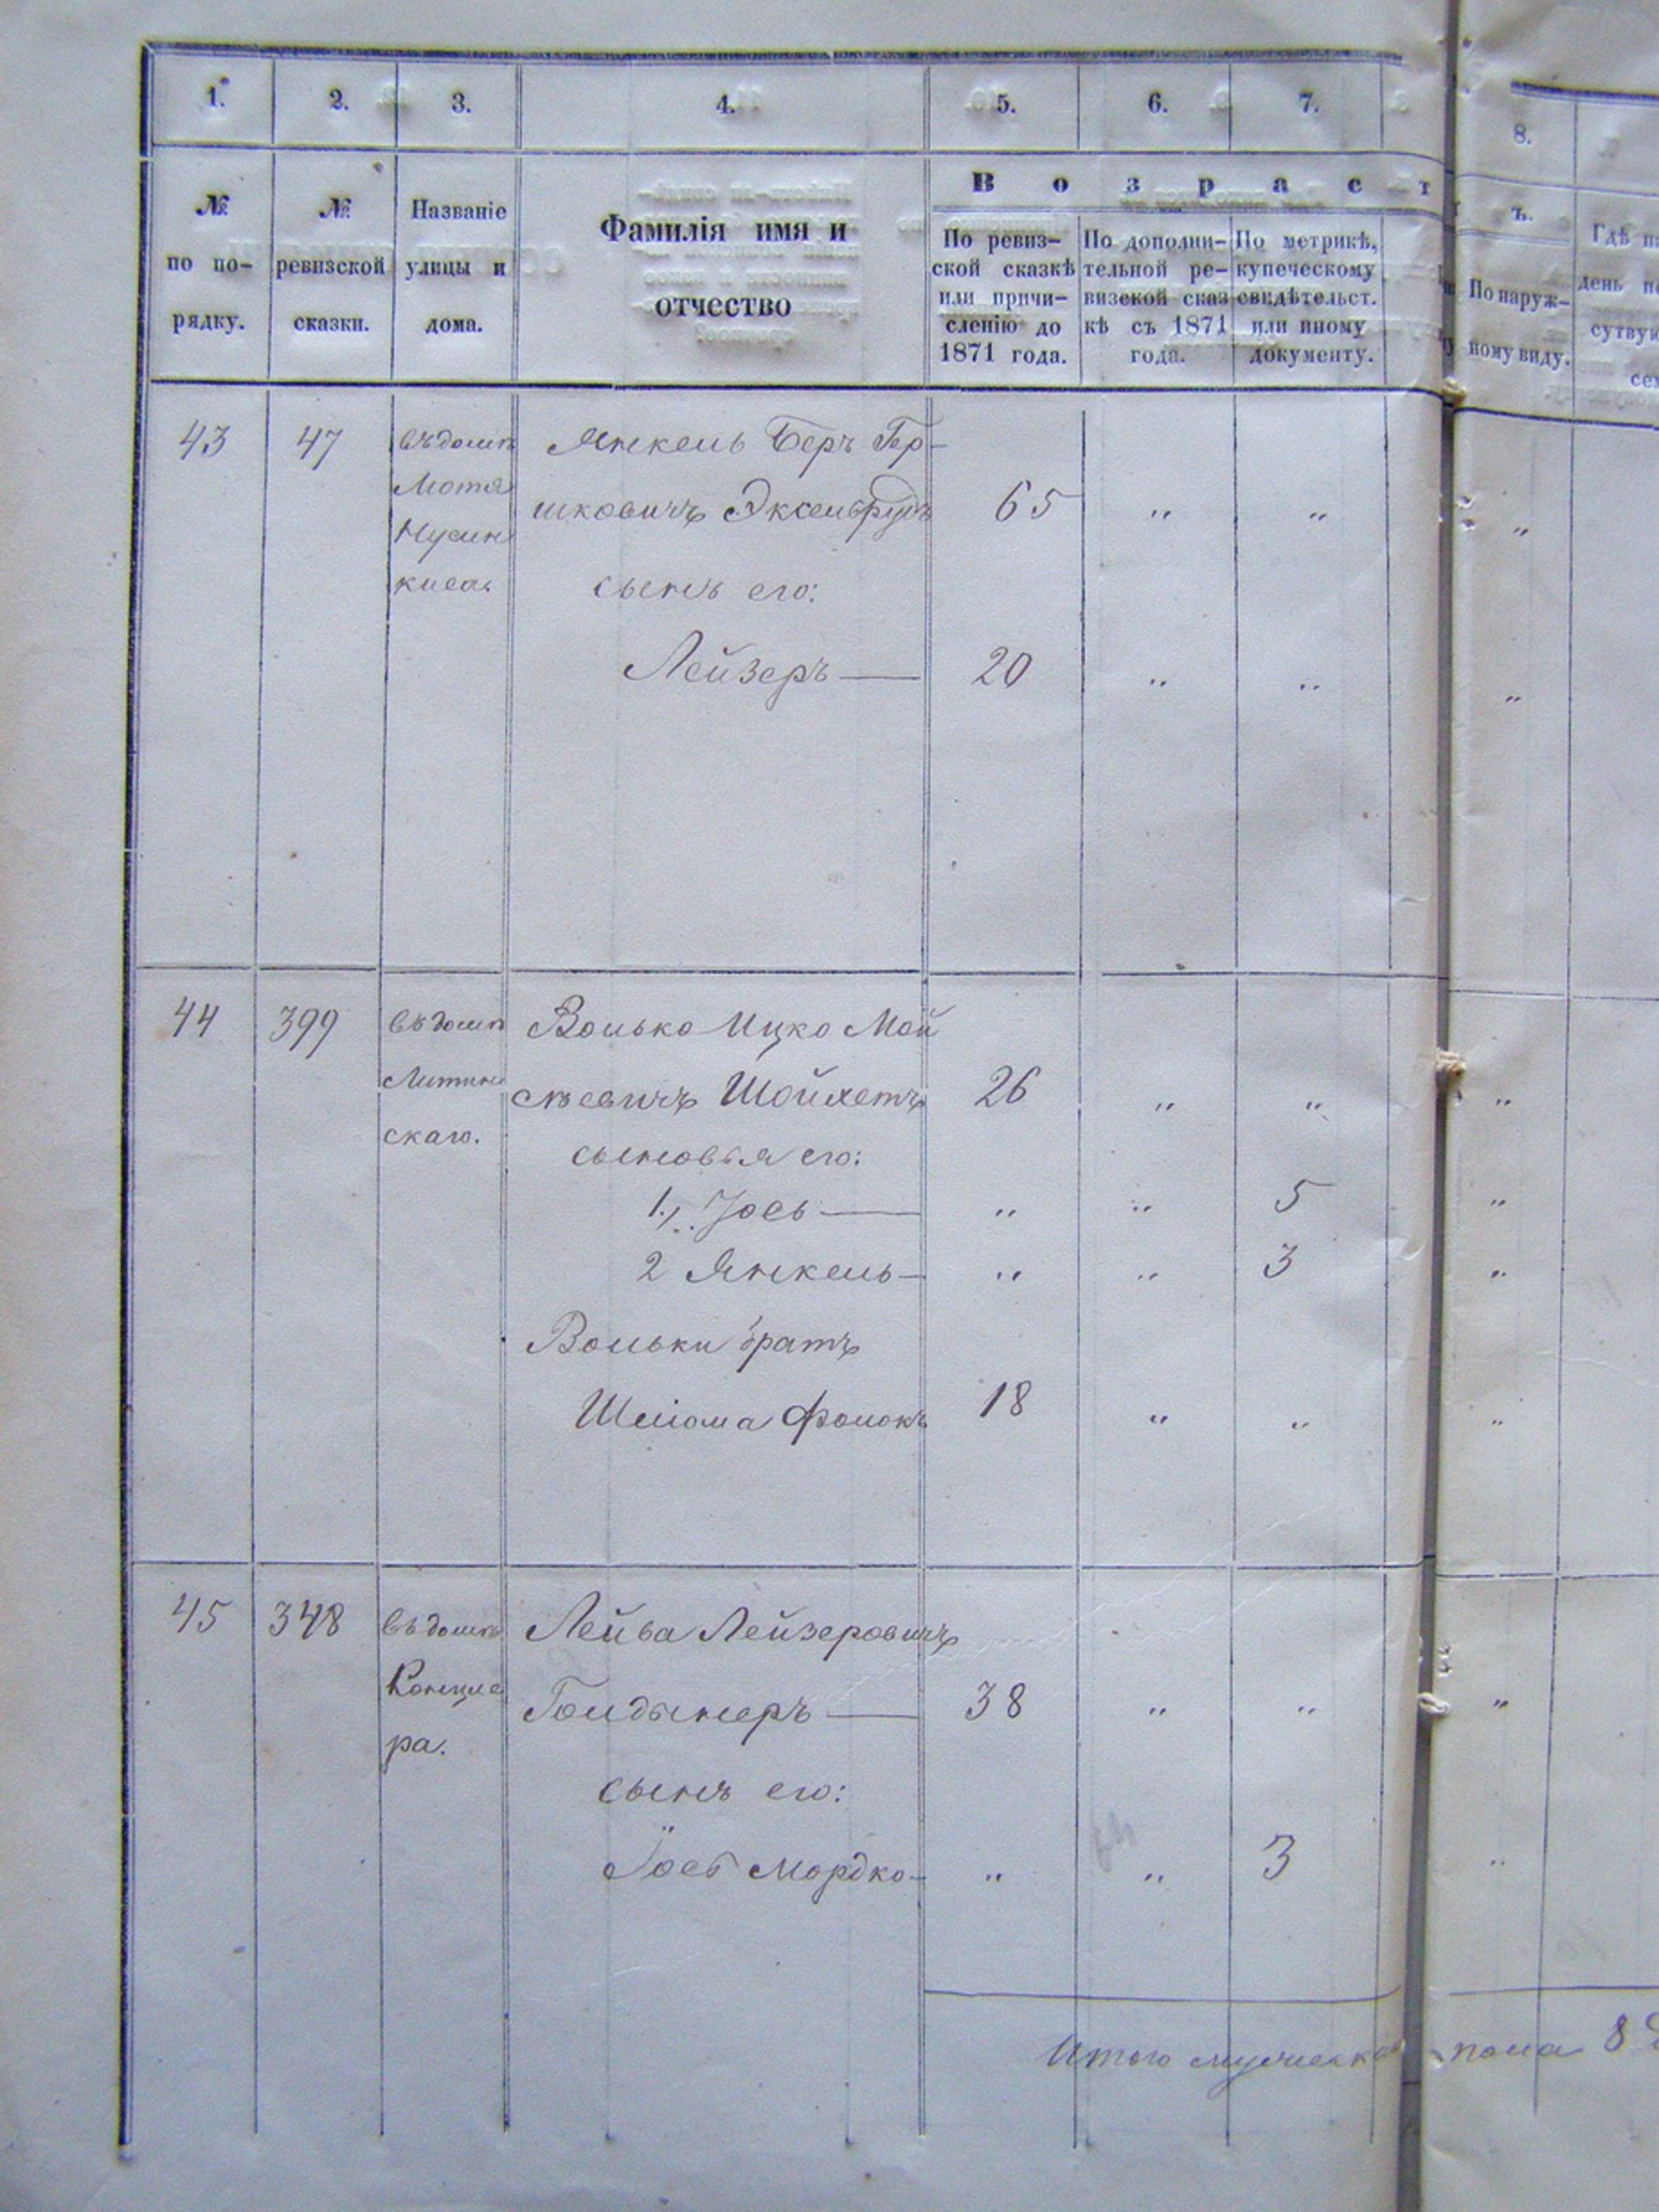 1. 2. 3. 4. 5. 6. 7. 8.
№ по по- рядку.
№ ревизской сказки.
Названіе улицы и дома.
Фамилія имя и отчество
В о з р а с т ъ.
По ревиз-
ской сказкѣ
или причи-
сленію до
1871 года.
По дополни-
тельной ре-
визской сказ
кѣ съ 1871
года.
По метрикѣ,
купеческому
свидѣтельст.
или иному
документу.
По наруж-
ному виду.
Гдѣ
день
43 47 въ домѣ Янкель Беръ Гер-
Мотя шковичъ Эксельрудъ 65 „ „ „
сынъ его:
Лейзеръ — 20 „ „ „
44 399 въ домѣ Волько Ицко Мой
Литин сѣевичъ Шойхетъ 26 „ „ „
скаго. сыновья его:
1., Іось — „ „ 5 „
2 Янкель — „ „ 3 „
Вольки братъ
Шліома Фолокъ 18 „ „ „
45 348 въ домѣ Лейба Лейзеровичъ
Концле Гольдинеръ — 38 „ „ „
ра. сынъ его:
Іось Мордко — „ „ 3 „
Итого мужеска пола 8